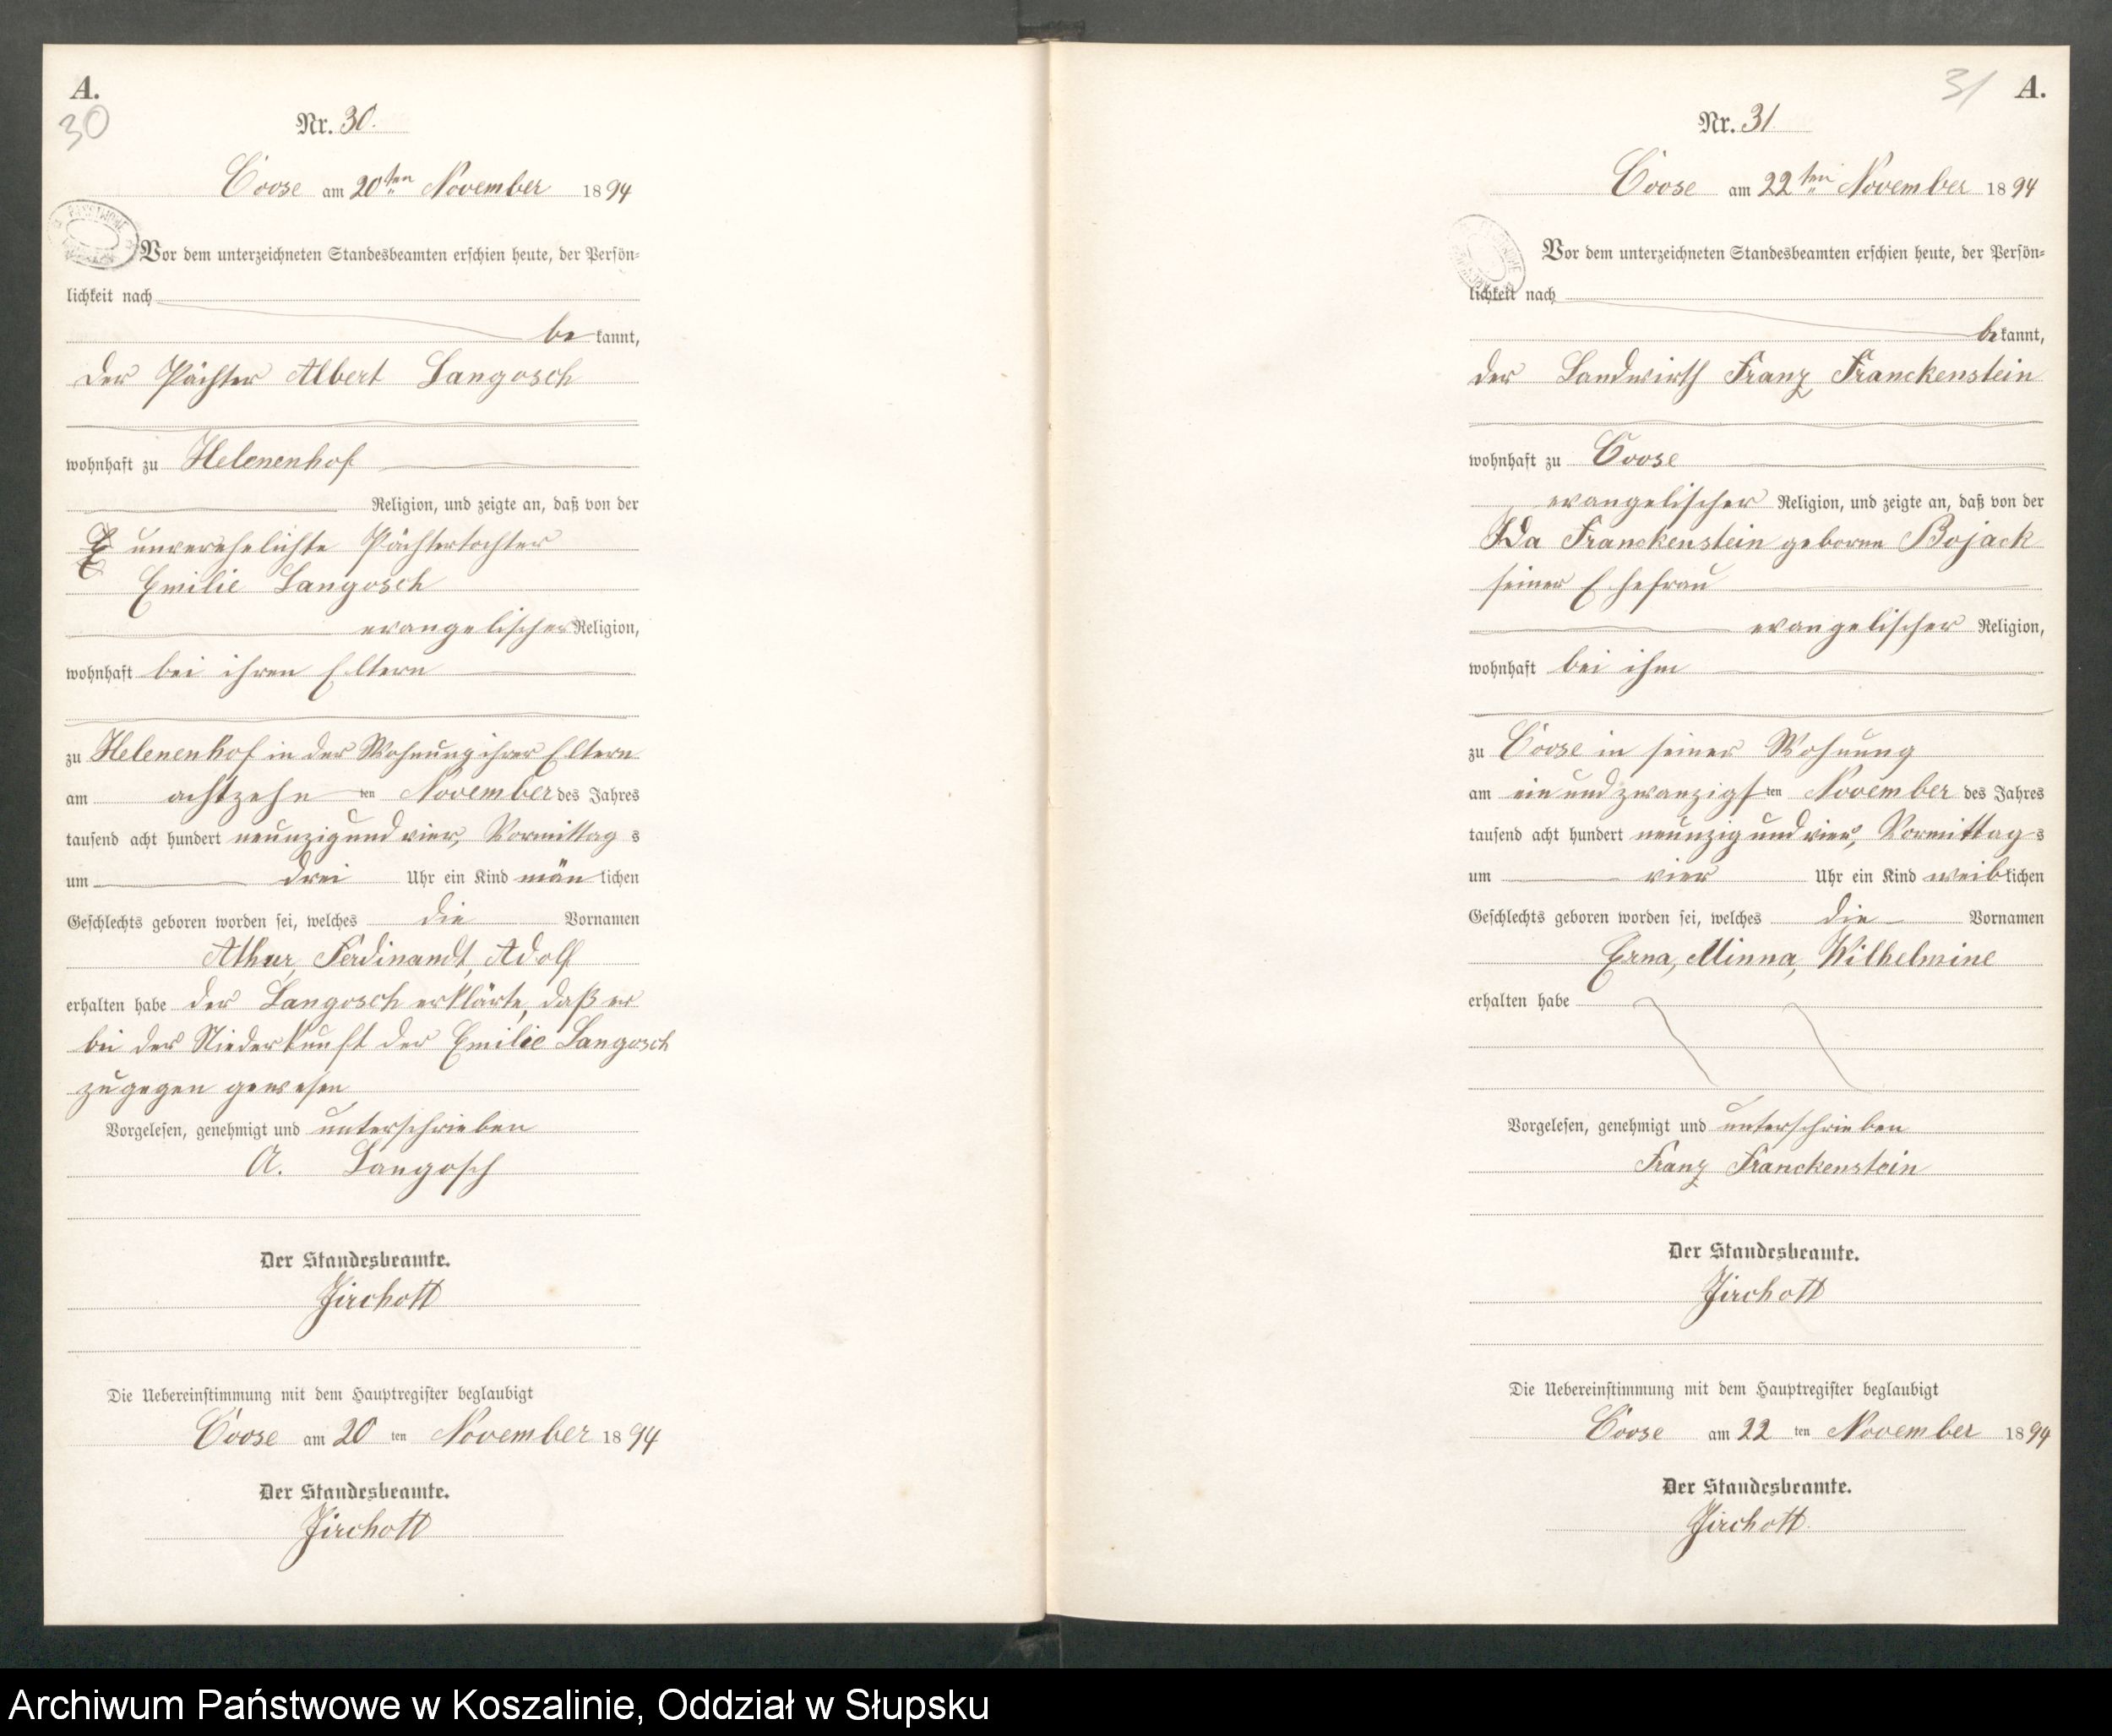 A.
30
Nr. 30.
Coose am 20ten November 1894
Vor dem unterzeichneten Standesbeamten erschien heute, der Persön-
lichkeit nach
be kannt,
der Pächter Albert Langosch
wohnhaft zu Helenenhof
Religion, und zeigte an, daß von der
unverehelichte Pächtertochter
Emilie Langosch
evangelischer Religion,
wohnhaft bei ihren Eltern
zu Helenenhof in der Wohnung ihrer Eltern
am achtzehn ten November des Jahres
tausend acht hundert neunzig und vier, Vormittag s
um drei Uhr ein Kind män lichen
Geschlechts geboren worden sei, welches die Vornamen
Athur, Ferdinandt, Adolf
erhalten habe der Langosch erklärte, daß er
bei der Niederkunft der Emilie Langosch
zugegen gewesen
Vorgelesen, genehmigt und unterschrieben
A. Langosch
Der Standesbeamte.
Jirchott
Die Uebereinstimmung mit dem Hauptregister beglaubigt
Coose am 20 ten November 1894
Der Standesbeamte.
Jirchott
31 A.
Nr. 31
Coose am 22ten November 1894
Vor dem unterzeichneten Standesbeamten erschien heute, der Persön-
lichkeit nach
be kannt,
der Landwirth Franz Franckenstein
wohnhaft zu Coose
evangelischer Religion, und zeigte an, daß von der
Ida Franckenstein geborne Bojack
seiner Ehefrau
evangelischer Religion,
wohnhaft bei ihm
zu Coose in seiner Wohnung
am ein und zwanzigs ten November des Jahres
tausend acht hundert neunzig und vier, Vormittag s
um vier Uhr ein Kind weib lichen
Geschlechts geboren worden sei, welches die Vornamen
Erna, Minna, Wilhelmine
erhalten habe
Vorgelesen, genehmigt und unterschrieben
Franz Franckenstein
Der Standesbeamte.
Jirchott
Die Uebereinstimmung mit dem Hauptregister beglaubigt
Coose am 22 ten November 1894
Der Standesbeamte.
Jirchott.
Archiwum Państwowe w Koszalinie, Oddział w Słupsku